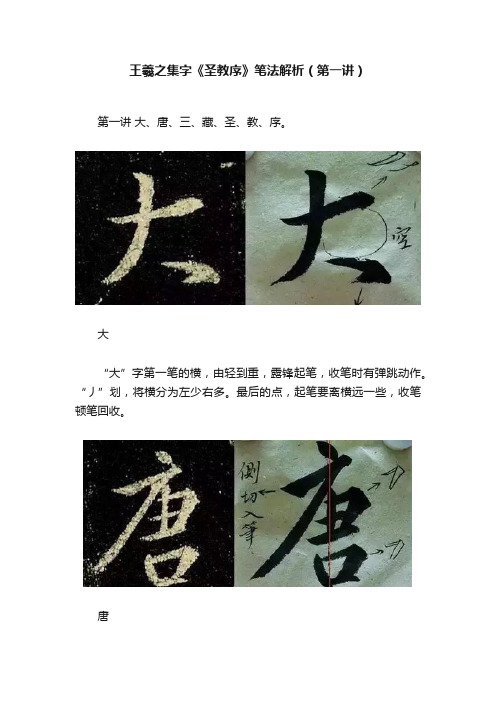 王羲之集字《圣教序》笔法解析（第一讲）
第一讲 大、唐、三、藏、圣、教、序。
大 大
空
大
“大”字第一笔的横，由轻到重，露锋起笔，收笔时有弹跳动作。
“丿”划，将横分为左少右多。最后的点，起笔要离横远一些，收笔
顿笔回收。
唐 唐
侧切入筆
唐